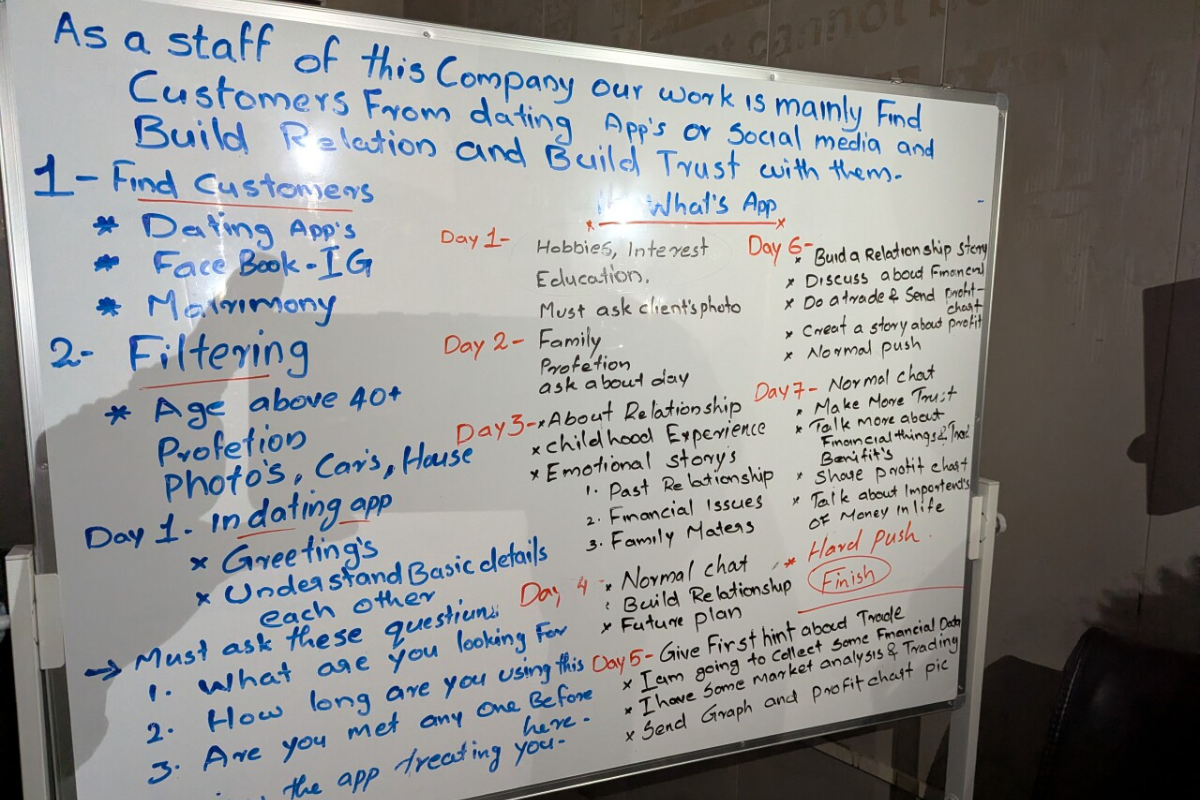 As a staff of this Company our work is mainly Find
Customers From dating App's or Social media and
Build Relation and Build Trust with them-
1- Find Customers
* Dating App's
* Face Book - IG
* Matrimony
2- Filtering
* Age above 40+
Profetion
Photo's, Car's, House
Day 1- In dating app
× Greeting's
× Understand Basic details
each other
→ Must ask these questions
1. What are you looking For
2. How long are you using this
3. Are you met any one Before
here-
the app treating you-
What's App
Day 1- Hobbies, Interest
Education,
Must ask client's photo
Day 2- Family
Profetion
ask about day
Day 3- × About Relationship
× childhood Experience
× Emotional Story's
1. Past Relationship
2. Financial Issues
3. Family Maters
Day 4 × Normal chat
Build Relationship
× Future plan
Day 5- Give First hint about Trade
× I am going to Collect Some Financial Data
× I have Some Market analysis & Trading
× Send Graph and profit chart pic
Day 6- × Buid a Relationship story
× Discuss about Financial
× Do a trade & Send profit-
chart
× Creat a story about profit
× Normal push
Day 7- Normal chat
× Make More Trust
× Talk more about
Financial things &
Benifit's
× Share profit chart
× Talk about Importend's
OF Money in life
* Hard Push.
Finish